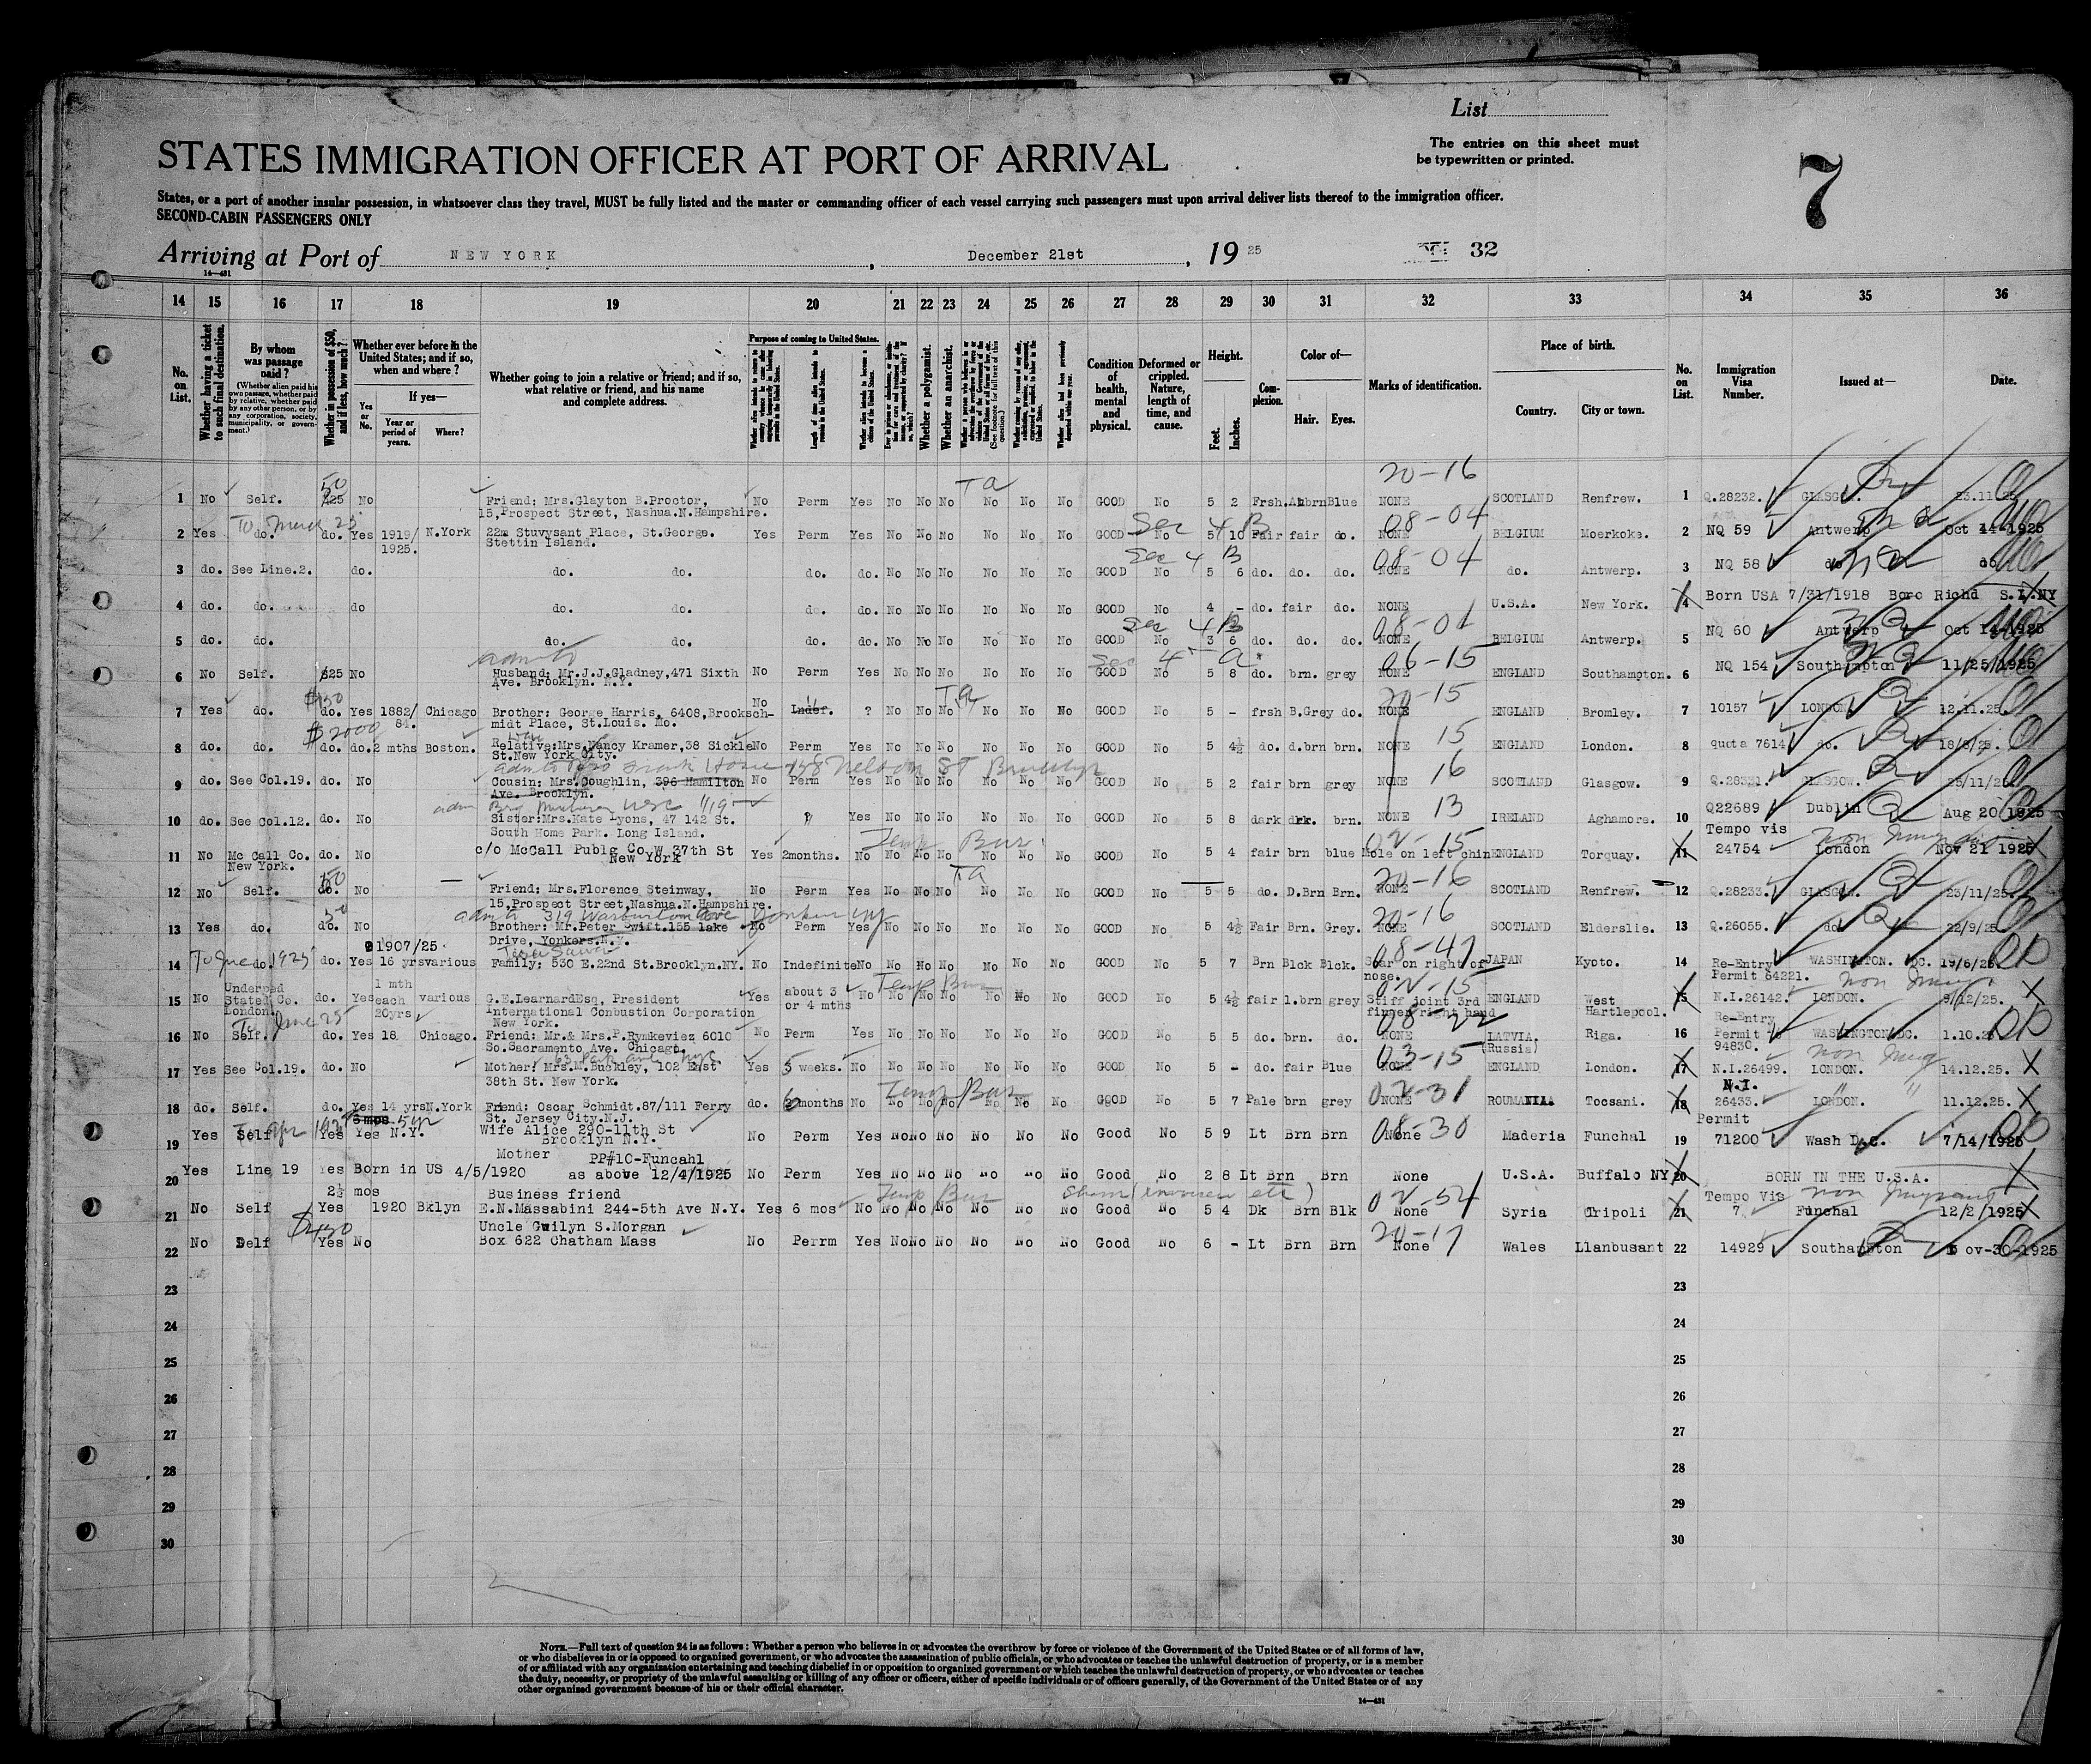 List
STATES IMMIGRATION OFFICER AT PORT OF ARRIVAL
The entries on this sheet must
be typewritten or printed.
7
States, or a port of another insular possession, in whatsoever class they travel, MUST be fully listed and the master or commanding officer of each vessel carrying such passengers must upon arrival deliver lists thereof to the immigration officer.
SECOND-CABIN PASSENGERS ONLY
Arriving at Port of NEW YORK, December 21st, 1925 32
14—431
14 15 16 17 18 19 20 21 22 23 24 25 26 27 28 29 30 31 32 33 34 35 36
No. on List.
Whether having a ticket to such final destination.
By whom was passage paid?
(Whether alien paid his own passage, whether paid by relative, whether paid by any other person, or by any corporation, society, municipality, or government.)
Whether in possession of $50, and if less, how much?
Whether ever before in the United States; and if so, when and where?
Yes or No.
If yes—
Year or period of years.
Where?
Whether going to join a relative or friend; and if so, what relative or friend, and his name and complete address.
Purpose of coming to United States.
Length of time alien intends to remain in the United States.
Whether alien intends to become a citizen of the United States.
Whether a polygamist.
Whether an anarchist.
Condition of health, mental and physical.
Deformed or crippled. Nature, length of time, and cause.
Height.
Feet. Inches.
Complexion.
Color of—
Hair. Eyes.
Marks of identification.
Place of birth.
Country. City or town.
No. on List.
Immigration Visa Number.
Issued at—
Date.
20-16
50 Ta
1 No Self. $25 No Friend; Mrs.Glayton B.Proctor, No Perm Yes No No No No No No GOOD No 5 2 Frsh.AubrnBlue NONE SCOTLAND Renfrew. 1 Q.28232. GLASGOW. 23.11.25
15,Prospect Street, Nashua.N.Hampshire.
Sec 4 B 08-04
2 Yes do. do. Yes 1919/ N.York 22m Stuvysant Place, St.George. Yes Perm Yes No No No No No No GOOD No 5 10 Fair fair do. NONE BELGIUM Moerkoke. 2 NQ 59 Antwerp Oct 14 1925
1925. Stettin Island.
Sec 4 B 08-04
3 do. See Line.2. do. do. do. do. do. No No No No No No GOOD No 5 6 do. do. do. NONE do. Antwerp. 3 NQ 58 do do
4 do. do. do do. do. do. do. No No No No No No GOOD No 4 - do. fair do. NONE U.S.A. New York. 4 Born USA 7/31/1918 Boro Richd S.I.NY
Sec 4 B 08-04
5 do. do. do. do. do. do. No No No No No No GOOD No 3 6 do. do. do. NONE BELGIUM Antwerp. 5 NQ 60 Antwerp Oct 14 1925
Sec 4 - a 06-15
6 No Self. $25 No Husband; Mr.J.J.Gladney,471 Sixth No Perm Yes No No No No No No GOOD No 5 8 do. brn. grey NONE ENGLAND Southampton. 6 NQ 154 Southampton 11/25/1925
Ave. Brooklyn. N.Y.
$150 Ta 20-15
7 Yes do. do. Yes 1882/ Chicago Brother; George Harris, 6408,Brooksch- No Indef. ? No No No No No No GOOD No 5 - frsh B.Grey do. NONE ENGLAND Bromley. 7 10157 LONDON. 12.11.25.
84. midt Place, St.Louis. Mo.
$2000 15
8 do. do. do. do.2 mths Boston. Relative;Mrs.Nancy Kramer,38 Sickle No Perm Yes No No No No No No GOOD No 5 4½ do. d.brn brn. NONE ENGLAND London. 8 quota 7614 do. 18/8/25.
St.New York City.
158 Nelson St Brooklyn 16
9 do. See Col.19. do. No Cousin; Mrs.Coughlin, 396 Hamilton No Perm Yes No No No No No No GOOD No 5 2 fair brn grey NONE SCOTLAND Glasgow. 9 Q.28331. GLASGOW. 25/11/25.
Ave. Brooklyn.
13
10 do. See Col.12. do. No Sister:Mrs.Kate Lyons, 47 142 St. Yes No No No No No No GOOD No 5 8 dark drk. brn. NONE IRELAND Aghamore. 10 Q22689 Dublin Aug 20 1925
South Home Park. Long Island.
Temp Bur 02-15 Tempo vis
11 No Mc Call Co. do. No c/o McCall Publg Co.W 37th St Yes 2months. No No No No No No No GOOD No 5 4 fair brn blue Mole on left chin ENGLAND Torquay. 11 24754 London Nov 21 1925
New York. New York
50 Ta 20-16
12 No Self. do. No Friend; Mrs.Florence Steinway, No Perm Yes No No No No No No GOOD No 5 5 do. D.Brn Brn. NONE SCOTLAND Renfrew. 12 Q.28233. GLASGOW. 23/11/25.
15,Prospect Street,Nashua.N.Hampshire.
319 Warburton Ave Yonkers NY 20-16
13 Yes do. do. No Brother; Mr.Peter Swift.155 lake No Perm Yes No No No No No No GOOD No 5 4½ Fair Brn. Grey. NONE SCOTLAND Elderslie. 13 Q.26055. do. 22/9/25
Drive, Yonkers.N.Y.
1907/25. 08-47
14 do. do. Yes 16 yrs various Family; 530 E.22nd St.Brooklyn.NY. No Indefinite No No No No No No No GOOD No 5 7 Brn Blck Blck. Scar on right of nose. JAPAN Kyoto. 14 Re-Entry Permit 64221. WASHINGTON. DC. 19/6/25.
Temp Bur 02-15 non immig
15 No Underped Stated Co. London. do. Yes 1 mth each 20yrs various G.E.LearnardEsq, President Yes about 3 or 4 mths No No No No No No No GOOD No 5 4½ fair l.brn grey Stiff joint 3rd finger right hand ENGLAND West Hartlepool. 15 N.I.26142. LONDON. 9/12/25.
International Conbustion Corporation
New York.
08-22
16 No Self. do. Yes 18 Chicago. Friend; Mr.& Mrs.P.Rymkeviez 6010 No Perm Yes No No No No No No GOOD No 5 5 do. brn. do. NONE LATVIA. (Russia) Riga. 16 Re-Entry Permit 94830. WASHINGTON.DC. 1.10.25
So.Sacramento Ave. Chicago.
63 Park Ave NYC 03-15 non immig
17 Yes See Col.19. do. No Mother; Mrs.M.Buckley, 102 East Yes 5 weeks. No No No No No No No GOOD No 5 - do. fair Blue NONE ENGLAND London. 17 N.I.26499. LONDON. 14.12.25.
38th St. New York.
Temp Bur 02-31 N.I.
18 do. Self. do. Yes 14 yrs N.York Friend; Oscar Schmidt.87/111 Ferry do. 6 months No No No No No No No GOOD No 5 7 Pale brn grey NONE ROUMANIA. Tocsani. 18 26433. LONDON. 11.12.25.
St. Jersey City.N.J.
08-30 Permit
19 Yes Self Yes Yes N.Y. Wife Alice 290-11th St No Perm Yes No No No No No No Good No 5 9 Lt Brn Brn None Maderia Funchal 19 71200 Wash D.C. 7/14/1925
Brooklyn N.Y.
Mother PP#10-Funcahl
20 Yes Line 19 Yes Born in US 4/5/1920 as above 12/4/1925 No Perm Yes No No No No No No Good No 2 8 Lt Brn Brn None U.S.A. Buffalo NY 20 BORN IN THE U.S.A.
2½ mos Business friend Temp Bur 02-54 Tempo Vis
21 No Self Yes 1920 Bklyn E.N.Massabini 244-5th Ave N.Y. Yes 6 mos No No No No No No No Good No 5 4 Dk Brn Blk None Syria Tripoli 21 7 Funchal 12/2/1925
$450 Uncle Gwilyn S.Morgan 20-17
22 No Delf Yes No Box 622 Chatham Mass No Perrm Yes No No No No No No Good No 6 - Lt Brn Brn None Wales Llanbusant 22 14929 Southampton ov-30-1925
23 23
24 24
25 25
26 26
27 27
28 28
29 29
30 30
NOTE.—Full text of question 24 is as follows: Whether a person who believes in or advocates the overthrow by force or violence of the Government of the United States or of all forms of law,
or who disbelieves in or is opposed to organized government, or who advocates the assassination of public officials, or who advocates or teaches the unlawful destruction of property, or is a member
of or affiliated with any organization entertaining and teaching disbelief in or opposition to organized government or which teaches the unlawful destruction of property, or who advocates or teaches
the duty, necessity, or propriety of the unlawful assaulting or killing of any officer or officers, either of specific individuals or of officers generally, of the Government of the United States or of any
other organized government because of his or their official character.
14—431